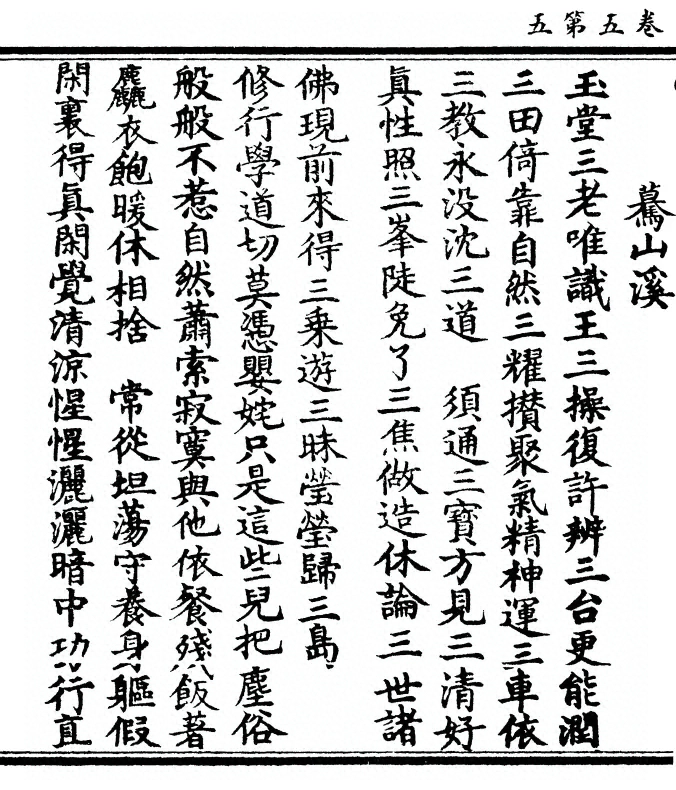 卷五第五
驀山溪
玉堂三老唯識王三操復許辨三台更能潤
三田倚靠自然三耀攢聚氣精神運三車依
三教永没沈三道　須通三寶方見三清好
眞性照三峯陡免了三焦做造休論三世諸
佛現前來得三乘遊三昧瑩瑩歸三島
修行學道切莫憑嬰姹只是這些兒把塵俗
般般不惹自然蕭索寂寞與他依餐殘飯著
麤衣飽暖休相捨　常從坦蕩守養身軀假
閑裏得眞閑覺清涼惺惺灑灑暗中功行直